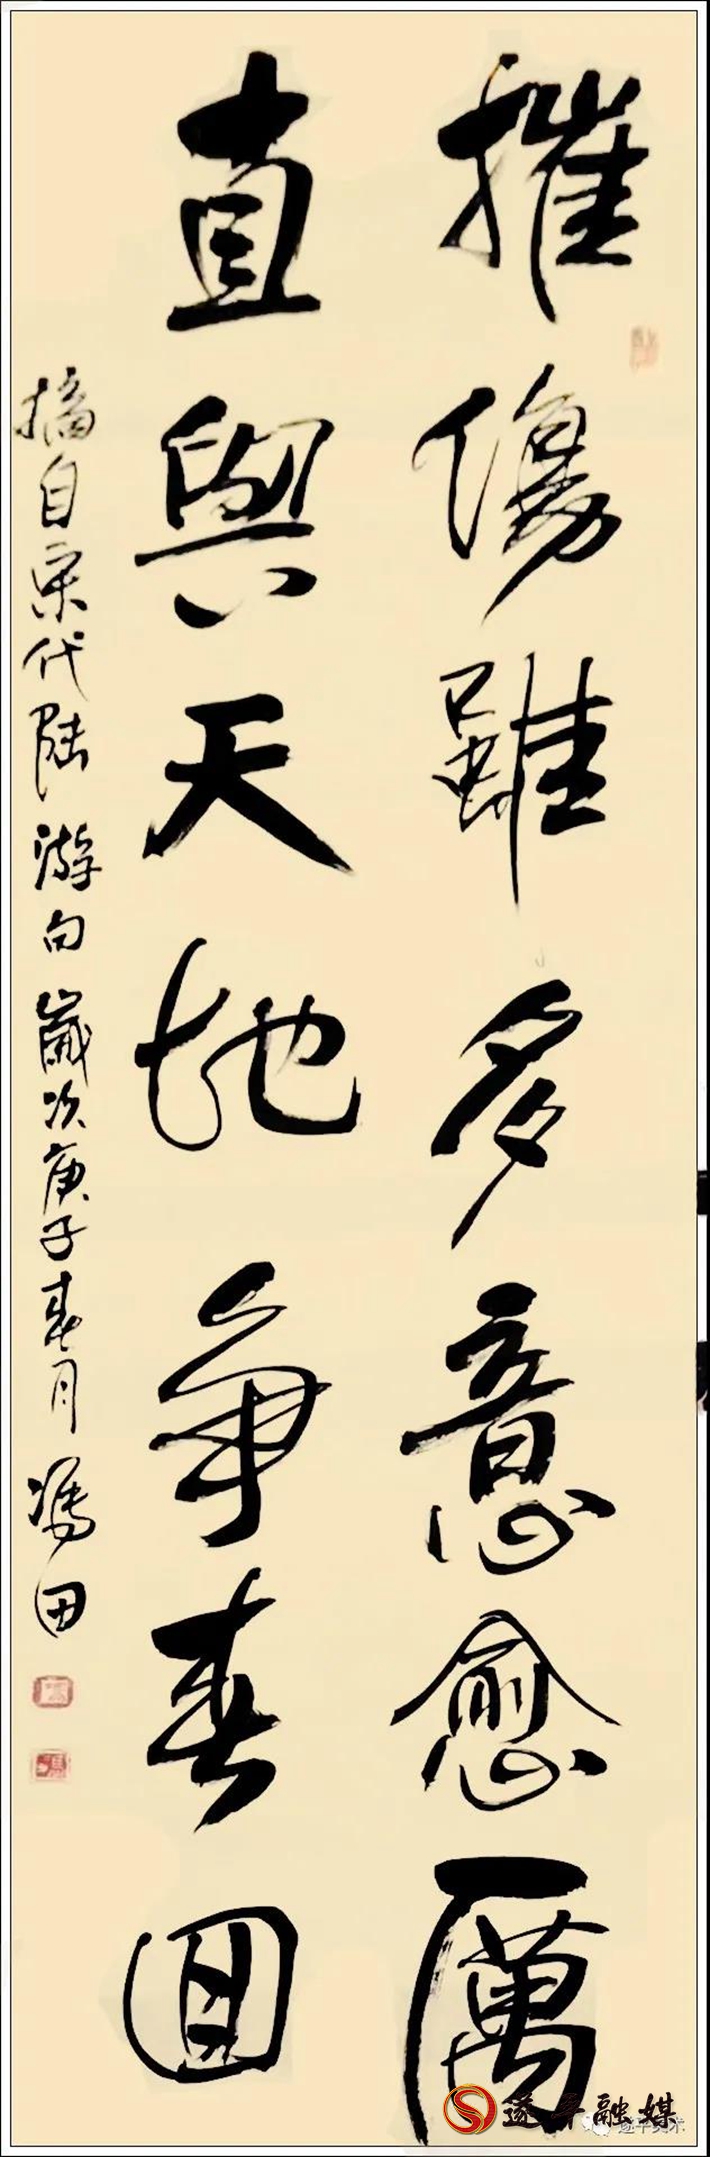 摧傷雖多意愈厲
直與天地爭春回
摘自宋代陆游句 歲次庚子春月 馮田
遂平融媒
遂平美术